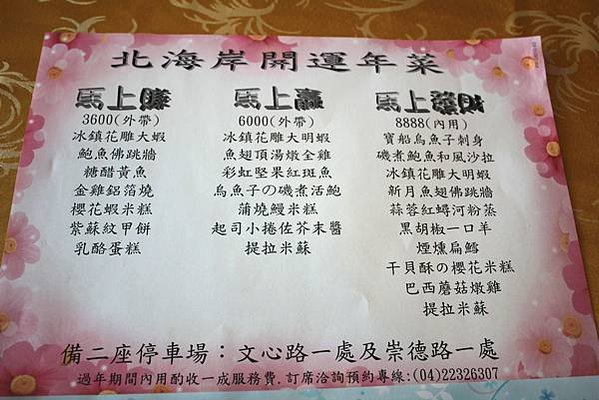 北海岸開運年菜
馬上賺
3600(外帶)
冰鎮花雕大蝦
鮑魚佛跳牆
糖醋黃魚
金雞鋁箔燒
櫻花蝦米糕
紫蘇紋甲餅
乳酪蛋糕
馬上贏
6000(外帶)
冰鎮花雕大明蝦
魚翅頂湯燉全雞
彩虹堅果紅斑魚
烏魚子の磯煮活鮑
蒲燒鰻米糕
起司小捲佐芥末醬
提拉米蘇
馬上發財
8888(內用)
寶船烏魚子刺身
磯煮鮑魚和風沙拉
冰鎮花雕大明蝦
新月魚翅佛跳牆
蒜蓉紅蟳河粉蒸
黑胡椒一口羊
煙燻扁鱈
干貝酥の櫻花米糕
巴西蘑菇燉雞
提拉米蘇
備二座停車場：文心路一處及崇德路一處
過年期間內用酌收一成服務費.訂席洽詢預約專線:(04)22326307